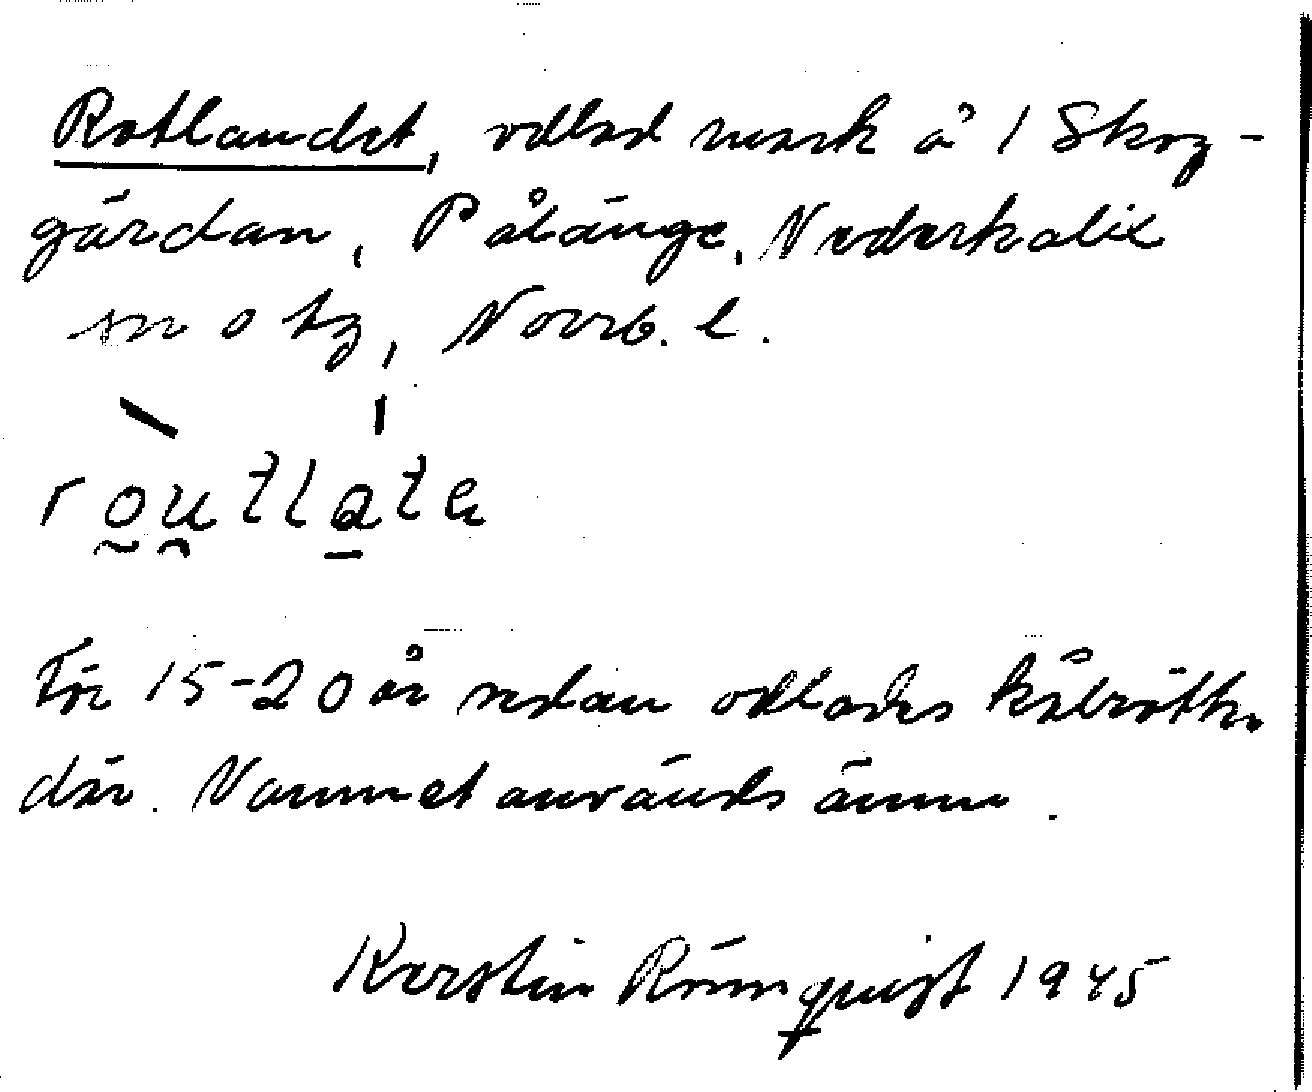 Rotlandet, odlad mark å 1 Skog-
gärdan, Pålänge, Nederkalix
sn o tg, Norrb. l.
routlata
För 15-20 år sedan odlades kålrötter
där. Namnet används ännu.
Kerstin Rönnquist 1945